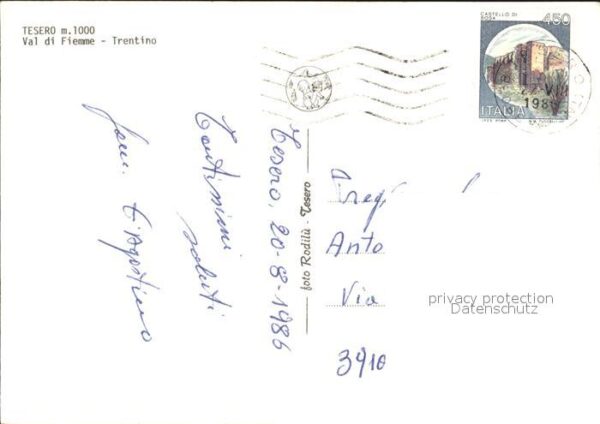 TESERO m.1000
Val di Fiemme - Trentino
CASTELLO DI
BOSA
450
ITALIA
198
Tesero, 20-8-1986
Tantissimi
saluti
Fam. D'Agostino
foto Rodilù - Tesero
Anto
Via
privacy protection
Datenschutz
3910